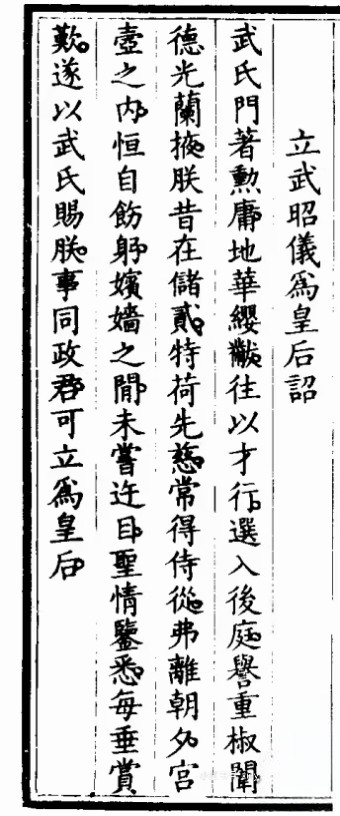 立武昭儀爲皇后詔
武氏門著勲庸地華纓黻往以才行選入後庭譽重椒闈
德光蘭掖朕昔在儲貳特荷先慈常得侍從弗離朝夕宮
壼之内恒自飭躬嬪嬙之間未嘗迕目聖情鑒悉每垂賞
歎遂以武氏賜朕事同政君可立爲皇后